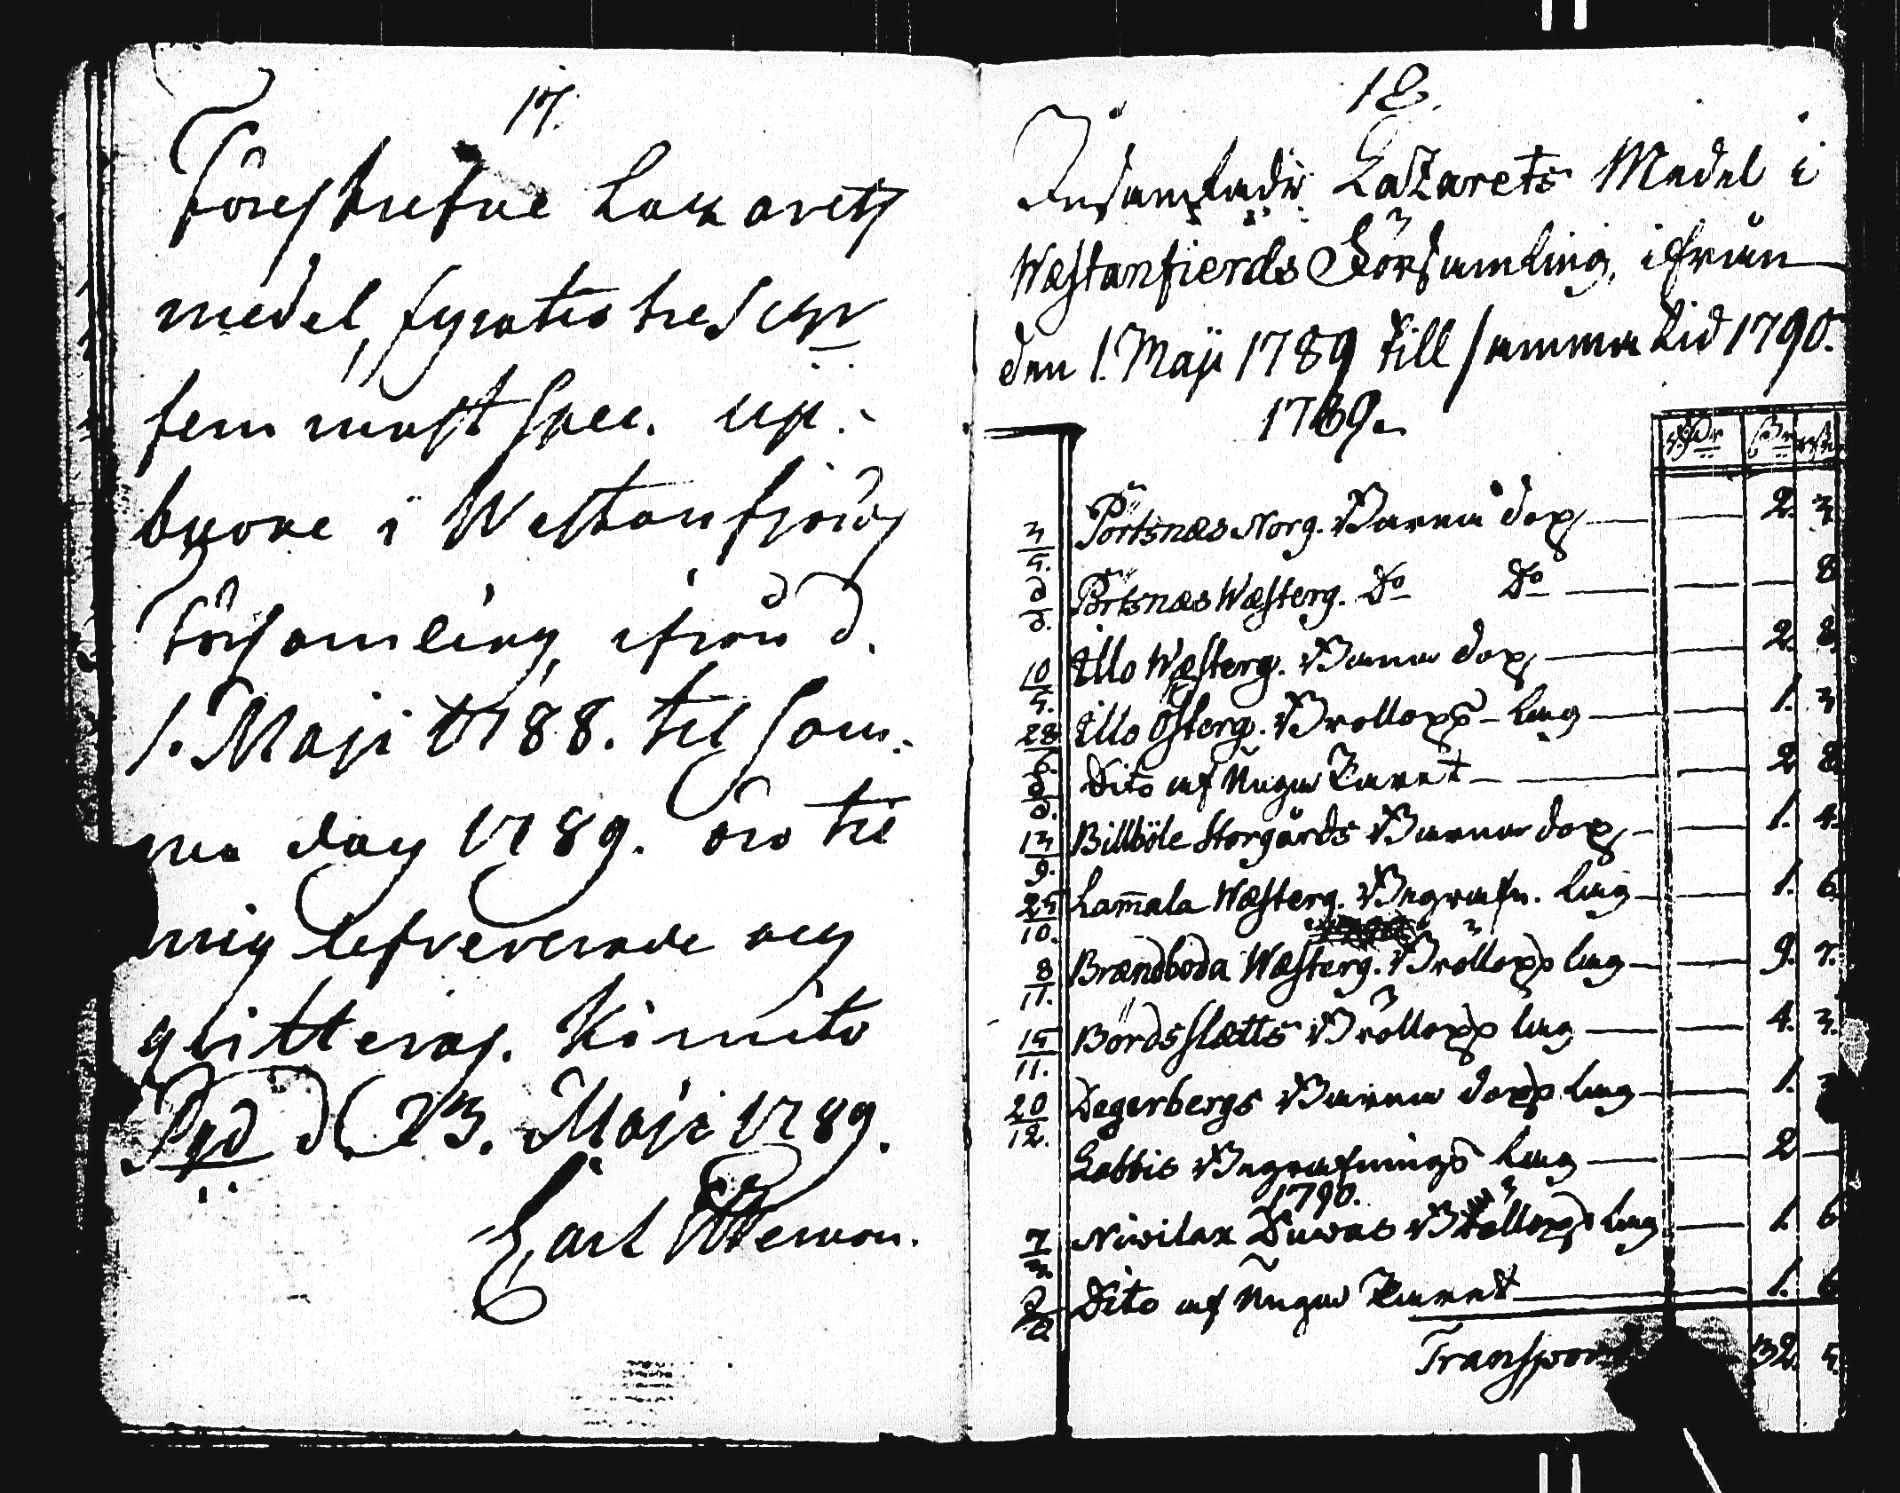 17.
Föreskrefne Lazaretts
medel, fyratio tre sch:r
fem runst. Spec. up-
burne i Westanfjerds
Församling, ifrån d.
1. Maji 1788. til sam-
ma dag 1789. äro til
mig lefvererade och
qvitteras. Kimito
Pgd d. 23. Maji 1789.
Carl
18.
Insamlade Lazarets Medel i
Wæstanfierds Församling, ifrån
den 1. Maji 1789 till samma tid 1790.
1789.
3/5. Pörtsnæs Norg. Barna dop 2. 3.
d/d. Pörtsnæs Wæsterg. Do Do 8
10/5. Illo Wæsterg. Barna dop 2. 8
28/6. Illo Österg. Brollops-lag 1. 3
d/d. Dito af Unga Paret 2 8
13/9. Billböle Storgårds Barna dop 1. 4.
25/10. Lam̄ala Wæsterg. Begrafn. lag 1. 6
8/11. Brændboda Wæsterg. Bröllops lag 9. 7.
15/11. Bordsslætts Bröllops lag 4. 3.
20/12. Degerbergs Barna dops lag 1.
Labbis Begrafnings lag 2 —
1790.
7/3. Nivilax Duvas Bröllops lag 1. 6
d/d Dito af Unga Paret 1. 6
Transport 32. 5